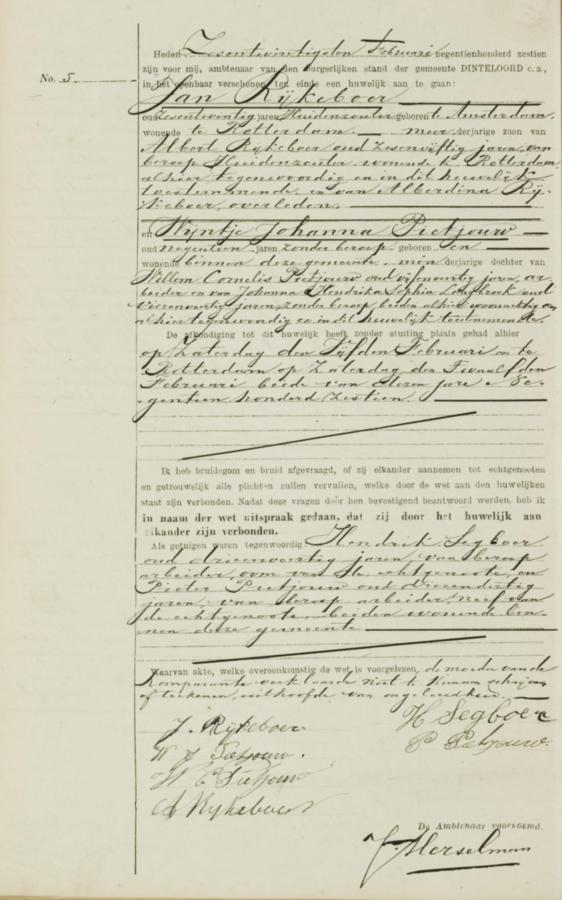 No. 5.
Heden Zesentwintigsten Februari negentienhonderd zestien
zijn voor mij, ambtenaar van den burgerlijken stand der gemeente DINTELOORD c.a.,
in het openbaar verschenen ten einde een huwelijk aan te gaan:
Jan Rijkeboer
oud zesentwintig jaren Huidenzouter geboren te Amsterdam
wonende te Rotterdam. meerderjarige zoon van
Albert Rijkeboer oud zesenvijftig jaren, van
beroep Huidenzouter wonende te Rotterdam
alhier tegenwoordig en in dit huwelijk
toestemmende, en van Alberdina Rij-
keboer, overleden.
en Wijntje Johanna Pietjouw
oud negentien jaren, zonder beroep geboren en
wonende binnen deze gemeente, minderjarige dochter van
Willem Cornelis Pietjouw oud vijfenveertig jaren, ar-
beider en van Johanna Hendrika Sophia oud
vierenveertig jaren, zonder beroep, beiden alhier woonachtig en
alhier tegenwoordig en in dit huwelijk toestemmende.
De afkondiging tot dit huwelijk heeft zonder stuiting plaats gehad alhier
op Zaterdag den Vijfden Februari en te
Rotterdam op Zaterdag den Twaalfden
Februari beide van dezen jare Ne-
gentien honderd Zestien.
Ik heb bruidegom en bruid afgevraagd, of zij elkander aannemen tot echtgenooten
en getrouwelijk alle plichten zullen vervullen, welke door de wet aan den huwelijken
staat zijn verbonden. Nadat deze vragen door hen bevestigend beantwoord werden, heb ik
in naam der wet uitspraak gedaan, dat zij door het huwelijk aan
elkander zijn verbonden.
Als getuigen waren tegenwoordig: Hendrik Segboer
oud drieenveertig jaren van beroep
arbeider, oom van de echtgenoote, en
Pieter Pietjouw oud drieendertig
jaren, van beroep arbeider, neef van
de echtgenoote, beiden wonende bin-
nen deze gemeente
Waarvan akte, welke overeenkomstig de wet is voorgelezen, de moeder van de
Komparante verklaarde niet te kunnen schrijven
of teekenen, uit hoofde van ongeleerdheid.
J. Rijkeboer
H Segboer
W J Pietjouw.
P Pietjouw.
W C Pietjouw
A Rijkeboer
De Ambtenaar voornoemd,
J. Merselman